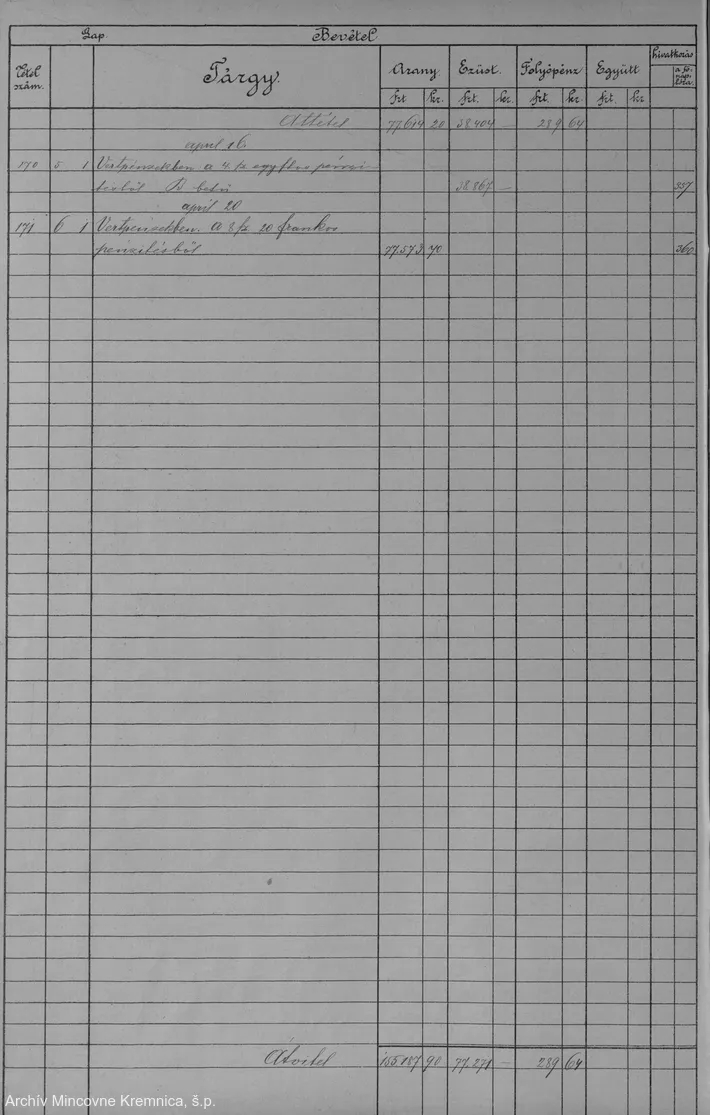 Lap. Bevétel
Tétel szám. Tárgy. Arany. Ezüst. Folyópénz Együtt hivatkozás
a fő-
nap-
lóra.
frt kr. frt. kr. frt. kr frt. kr
Áttétel 77.614 20 38.404 — 289 64
april 16
170 5 1 Vertpénzekben. a 4. sz. egy ftos pénzi-
tésből B betű 38.867 — 357
april 20
171 6 1 Vertpénzekben. a 8 sz. 20 frankos
pénzitésből 77.573 70 360
Átvitel 155.187 90 77.271 — 289 64
Archív Mincovne Kremnica, š.p.